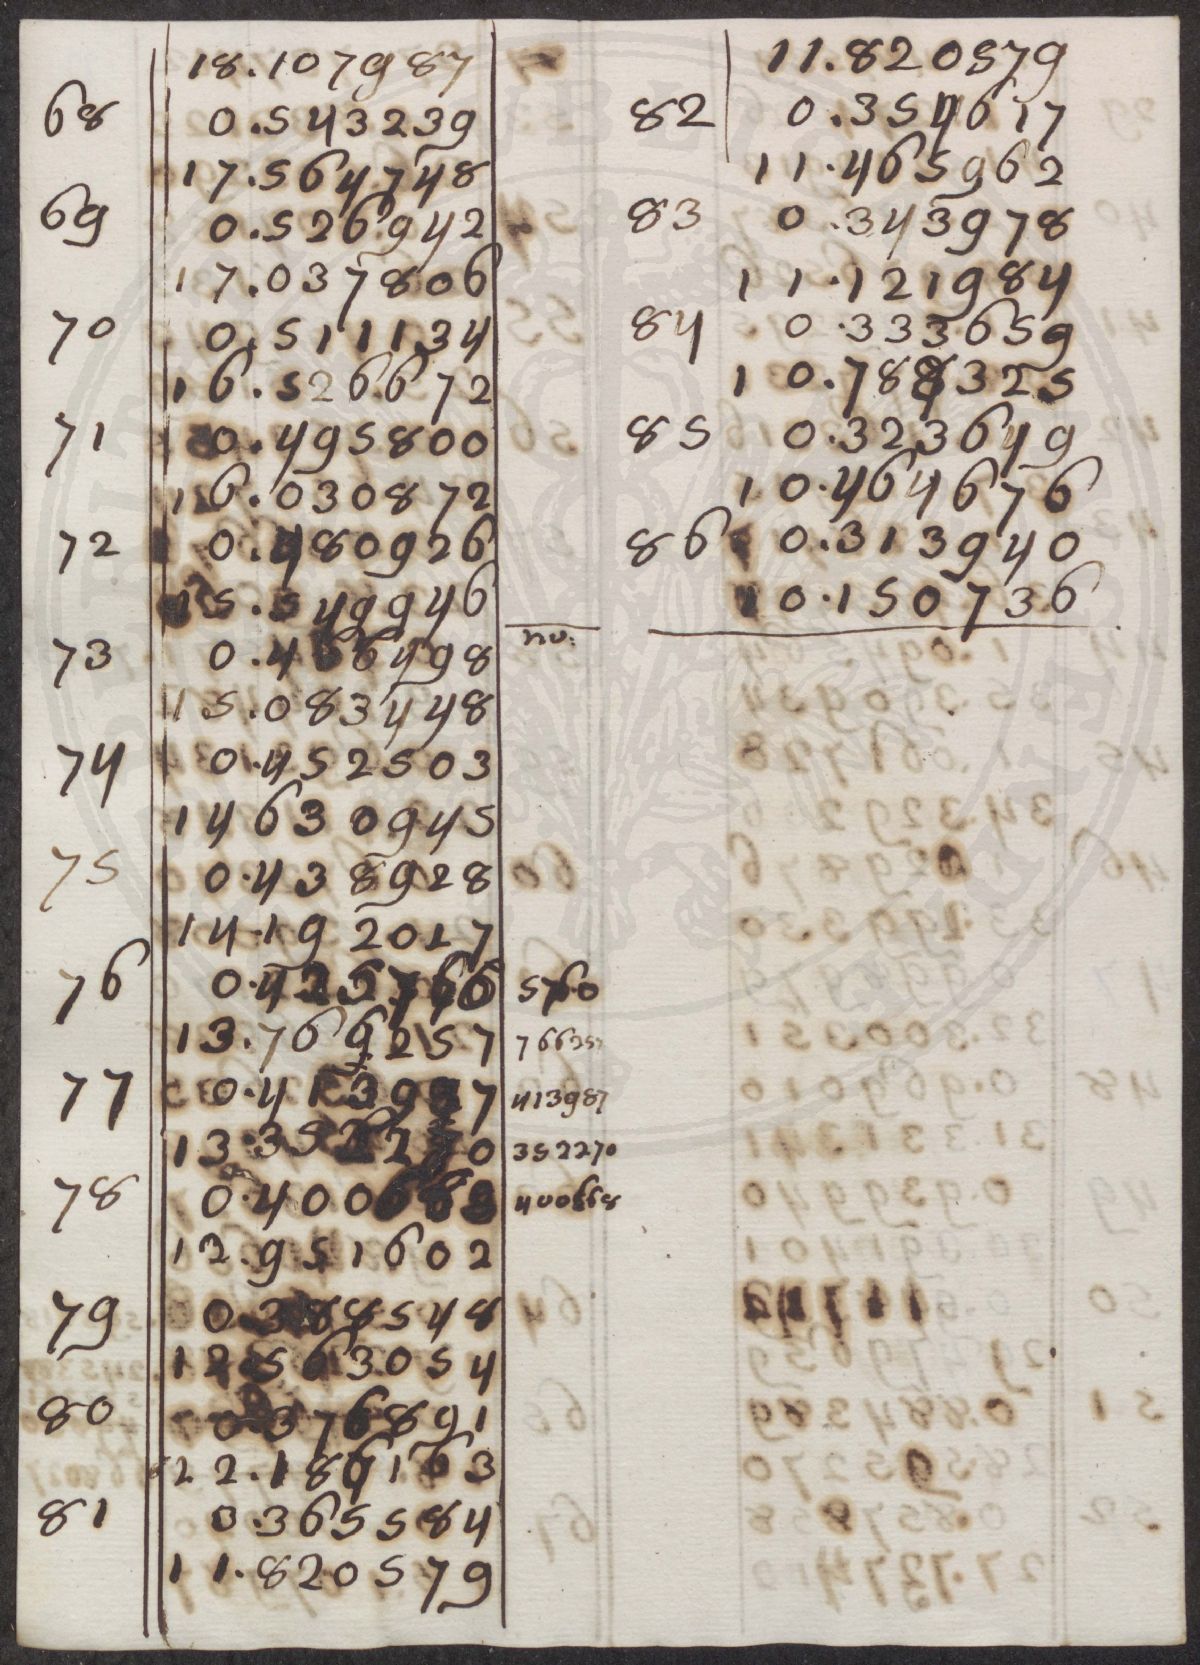 18.107987
68 0.543239
17.564748
69 0.526942
17.037806
70 0.511134
16.526672
71 0.495800
16.030872
72 0.480926
15.549946
73 0.466498
15.083448
74 0.452503
14630945
75 0.438928
14.192017
76 0.425760 5760
13.766257 766257
77 0.413987 413987
13.352270 352270
78 0.400668 400668
12.951602
79 0.388548
12.563054
80 0.376891
22.186163
81 0.365584
11.820579
11.820579
82 0.354617
11.465962
83 0.343978
11.121984
84 0.333659
10.788325
85 0.323649
10.464676
86 0.313940
10.150736
no: